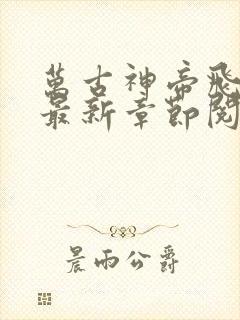 萬古神帝飛
最新章節閱
晨雨公爵